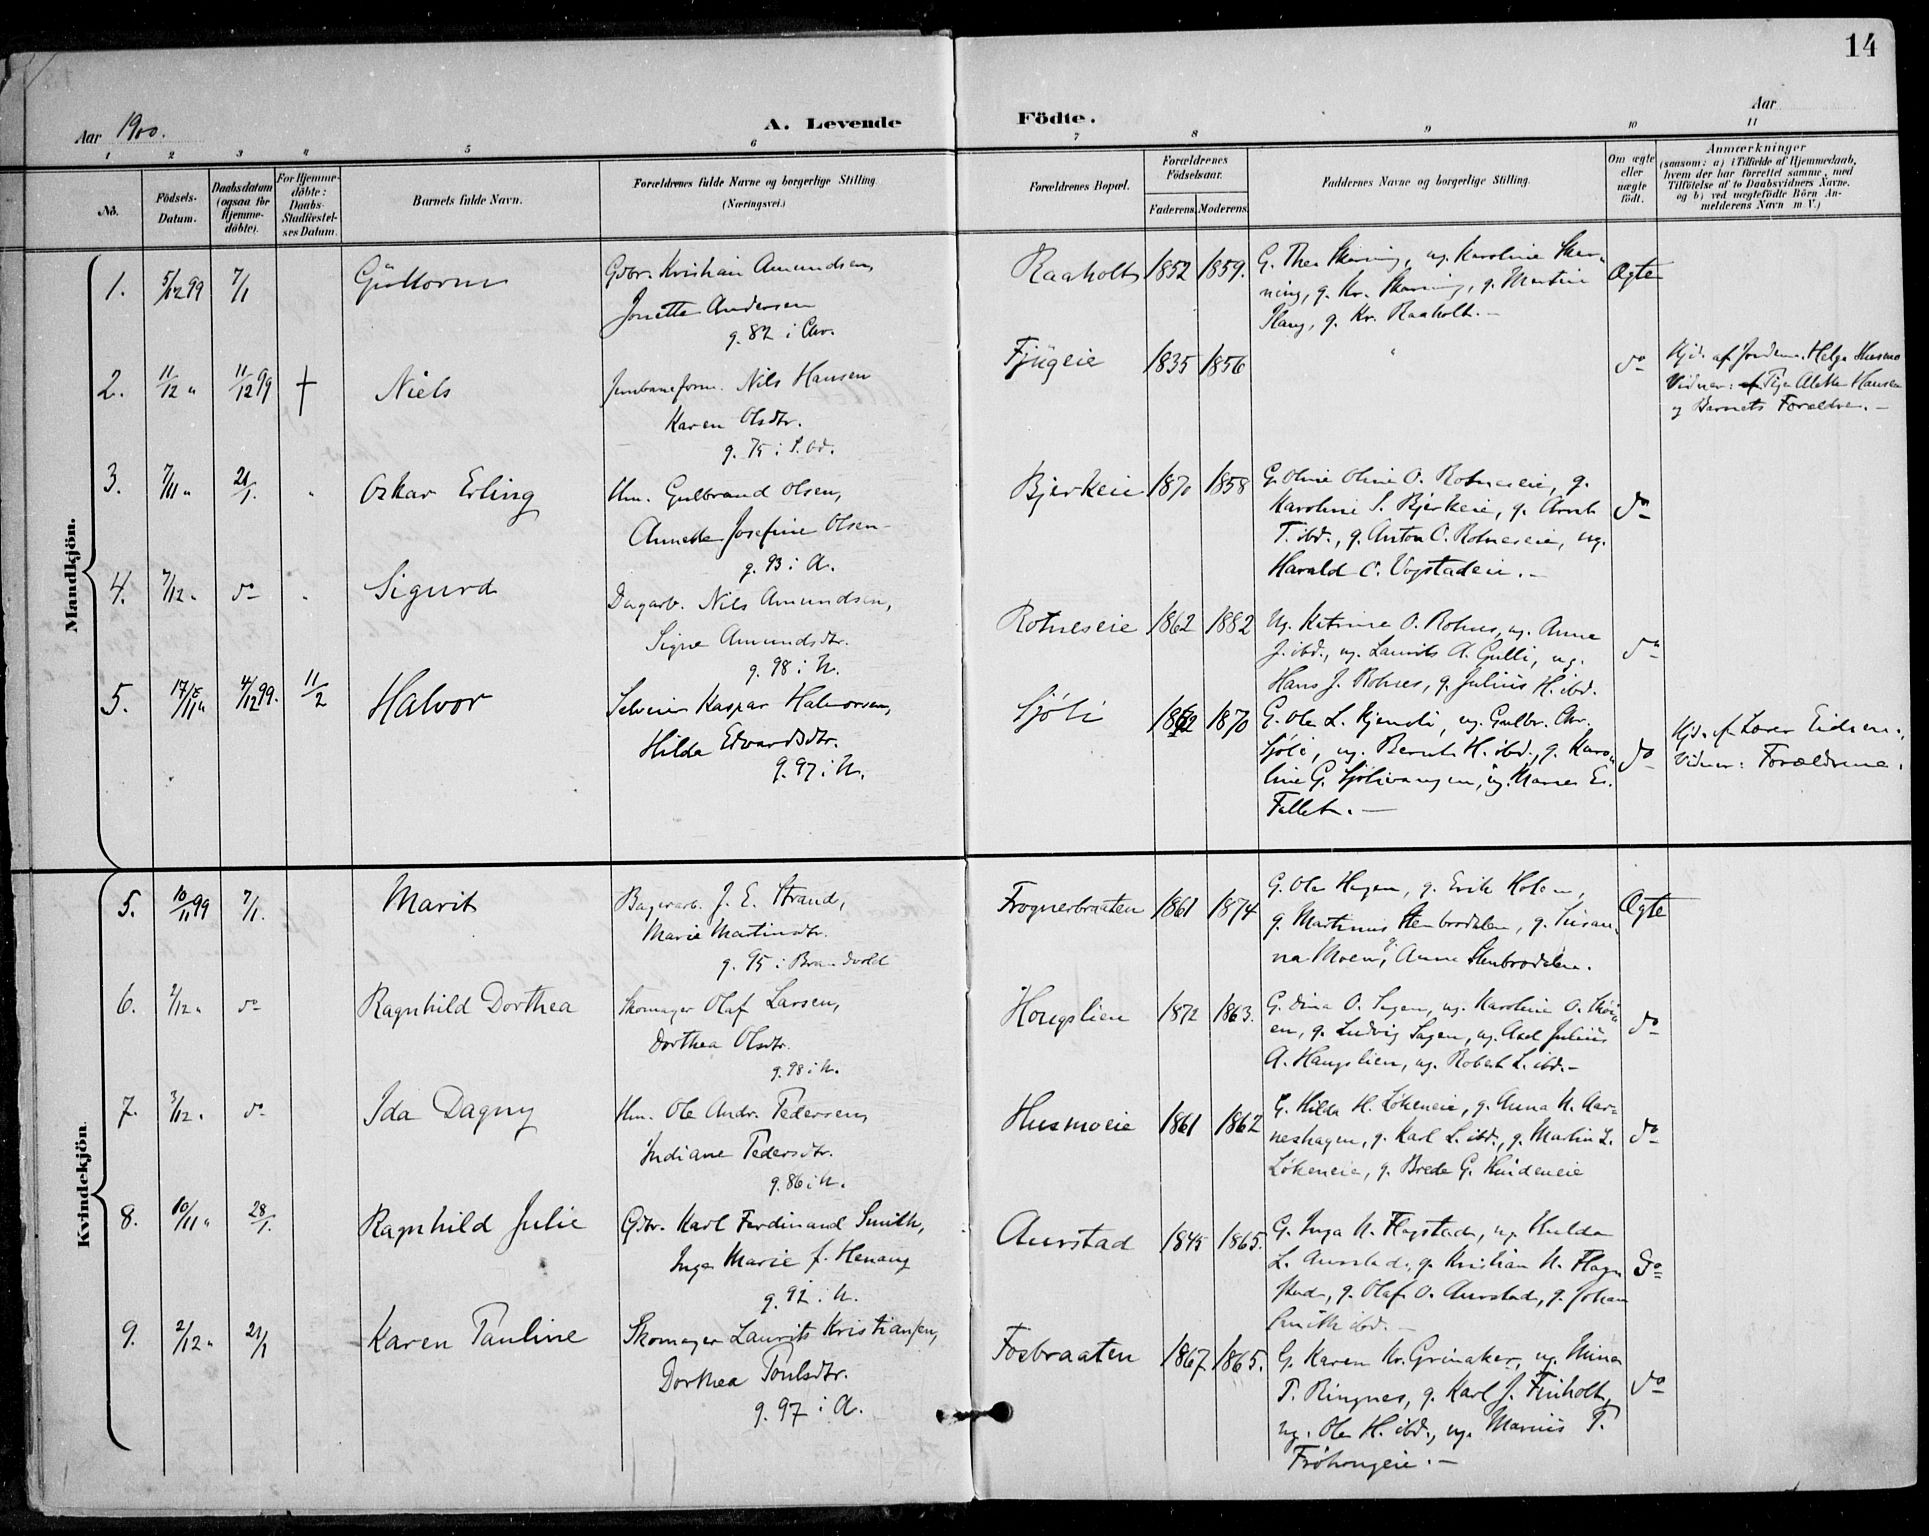 14
Aar 1900.
A. Levende
Födte.
Aar
1 2 3 4 5 6 7 8 9 10 11
No.
Födsels-Datum.
Daabsdatum (ogsaa for Hjemme-döbte).
For Hjemme-döbte: Daabs-Stadfæstel-ses Datum.
Barnets fulde Navn.
Forældrenes fulde Navne og borgerlige Stilling
(Næringsvei.)
Forældrenes Bopæl.
Forældrenes Födselsaar.
Faderens.
Moderens.
Faddernes Navne og borgerlige Stilling.
Om ægte eller uægte födt.
Anmærkninger
(saasom: a) i Tilfælde af Hjemmedaab,
hvem der har forrettet samme, med
Tilföielse af to Daabsvidners Navne.
og b) ved uægtefödte Börn An-
melderens Navn m. V.)
Mandkjön.
1. 5/12 99 7/1 Guttorm
Gdbr. Kristian Amundsen,
Jonette Andersen
g. 82 i Chr.
Raaholt 1852 1859.
G. Thea Skarning, ug. Karoline Skar-
ning, g. Kr. Skarning, g. Martin
g. Kr. Raaholt.-
Ægte
2. 11/12 " 11/12 99 † Niels
Jernbaneform. Nils Hansen
Karen Olsdtr.
g. 75 i
Fjugeie 1835 1856
do
Hjd. af Jordem. Helga Husmo
Vidner: Pige Alette Hansen
og Barnets Forældre.-
3. 7/11 " 21/1. Oskar Erling
Hm. Gulbrand Olsen,
Annette Josefine Olsen
g. 93 i A.
Bjerkeie 1870 1858
G. Oline O. Rotneseie, g.
Karoline S. Bjerkeie, g. Arnt
T. ibd., g. Anton C. Rotneseie, ug.
Harald C. Vogstadeie.-
do
4. 7/12 " do Sigurd
Dagarb. Nils Amundsen,
Signe Amundsdtr.
g. 98 i N.
Rotneseie 1862 1882
Ug. Katrine O. Rotnes, ug. Anne
J. ibd., ug. Laurits A. Gulli, ug.
Hans J. Rotnes, g. Julius H. ibd.
do
5. 17/11 " 4/12 99. 11/2 Halvor
Selveier Kaspar Halvorsen,
Hilda Edvardsdtr.
g. 97 i N.
Sjøli 1872 1870
G. Ole L. ug. Gulbr. Chr.
Sjøli, ug. Bernt H. ibd., g. Karo-
line G. Sjølivangen, ug. Maren E.
Fallet.-
do
Hjd. af Lærer Eidsen.,
Vidner: Forældrene.
Kvindekjön.
5. 10/11 99 7/1. Marit
Bagerarb. J. E. Strand,
Marie Martinsdtr.
g. 95 i Brandvold
Frognerbraaten 1861 1874
G. Ole Hagen, g. Erik Holen,
g. Martinus Stenbrodalen, g. Susan-
na Moen, g. Anne Stenbrodalen.
Ægte
6. 2/12 " do Ragnhild Dorthea
Skomager Olaf Larsen,
Dorthea Olsdtr.
g. 98 i N.
Hougslien 1872 1863.
G. Dina O. Sagen, ug. Karoline O.
en, g. Ludvig Sagen, ug. Axel Julius
A. Haugslien, ug. Robert L. ibd.-
do
7. 3/12 " do Ida Dagny
Hm. Ole Andr. Pedersen,
Indiane Pedersdtr.
g. 86 i N.
Husmoeie 1861 1862
G. Hilda H. Løkeneie, g. Anna N. Aar-
neshagen, g. Karl L. ibd., g. Martin L.
Løkeneie, g. Brede G.
do
8. 10/11 " 28/1. Ragnhild Julie
Gdbr. Karl Ferdinand Smith,
Inga Marie f. Henaug
g. 92 i N.
Aurstad 1845 1865.
G. Inga N. Flagstad, ug. Hulda
L. Aurstad, g. Kristian N. Flag-
stad, g. Olaf O. Aurstad, g. Johan
Smith ibd.-
do
9. 2/12 " 21/1 Karen Pauline
Skomager Laurits Kristiansen,
Dorthea Poulsdtr.
g. 97 i A.
Fosbraaten 1867 1865.
G. Karen Kr. Grinaker, ug. Mina
P. Ringnes, g. Karl J. Finholt,
ug. Ole H. ibd., ug. Marius P.
Frøhaugeie.-
do